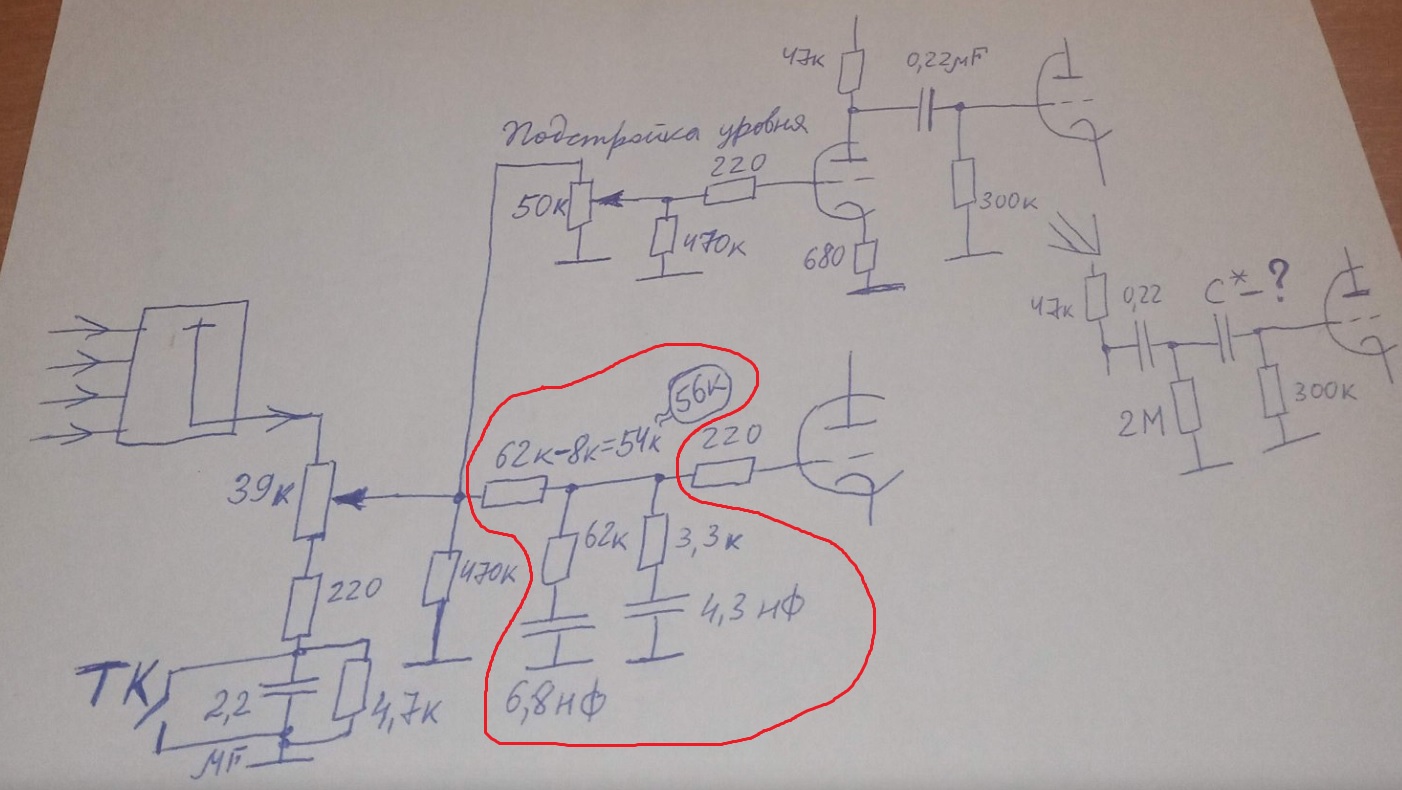 47к
0,22μF
Подстройка уровня
220
50к
470к
300к
680
47к
0,22
С*-?
2М
300к
56к
62к-8к=54к
220
39к
470к
62к
3,3к
220
4,3 нФ
ТК
2,2
4,7к
6,8нФ
μF